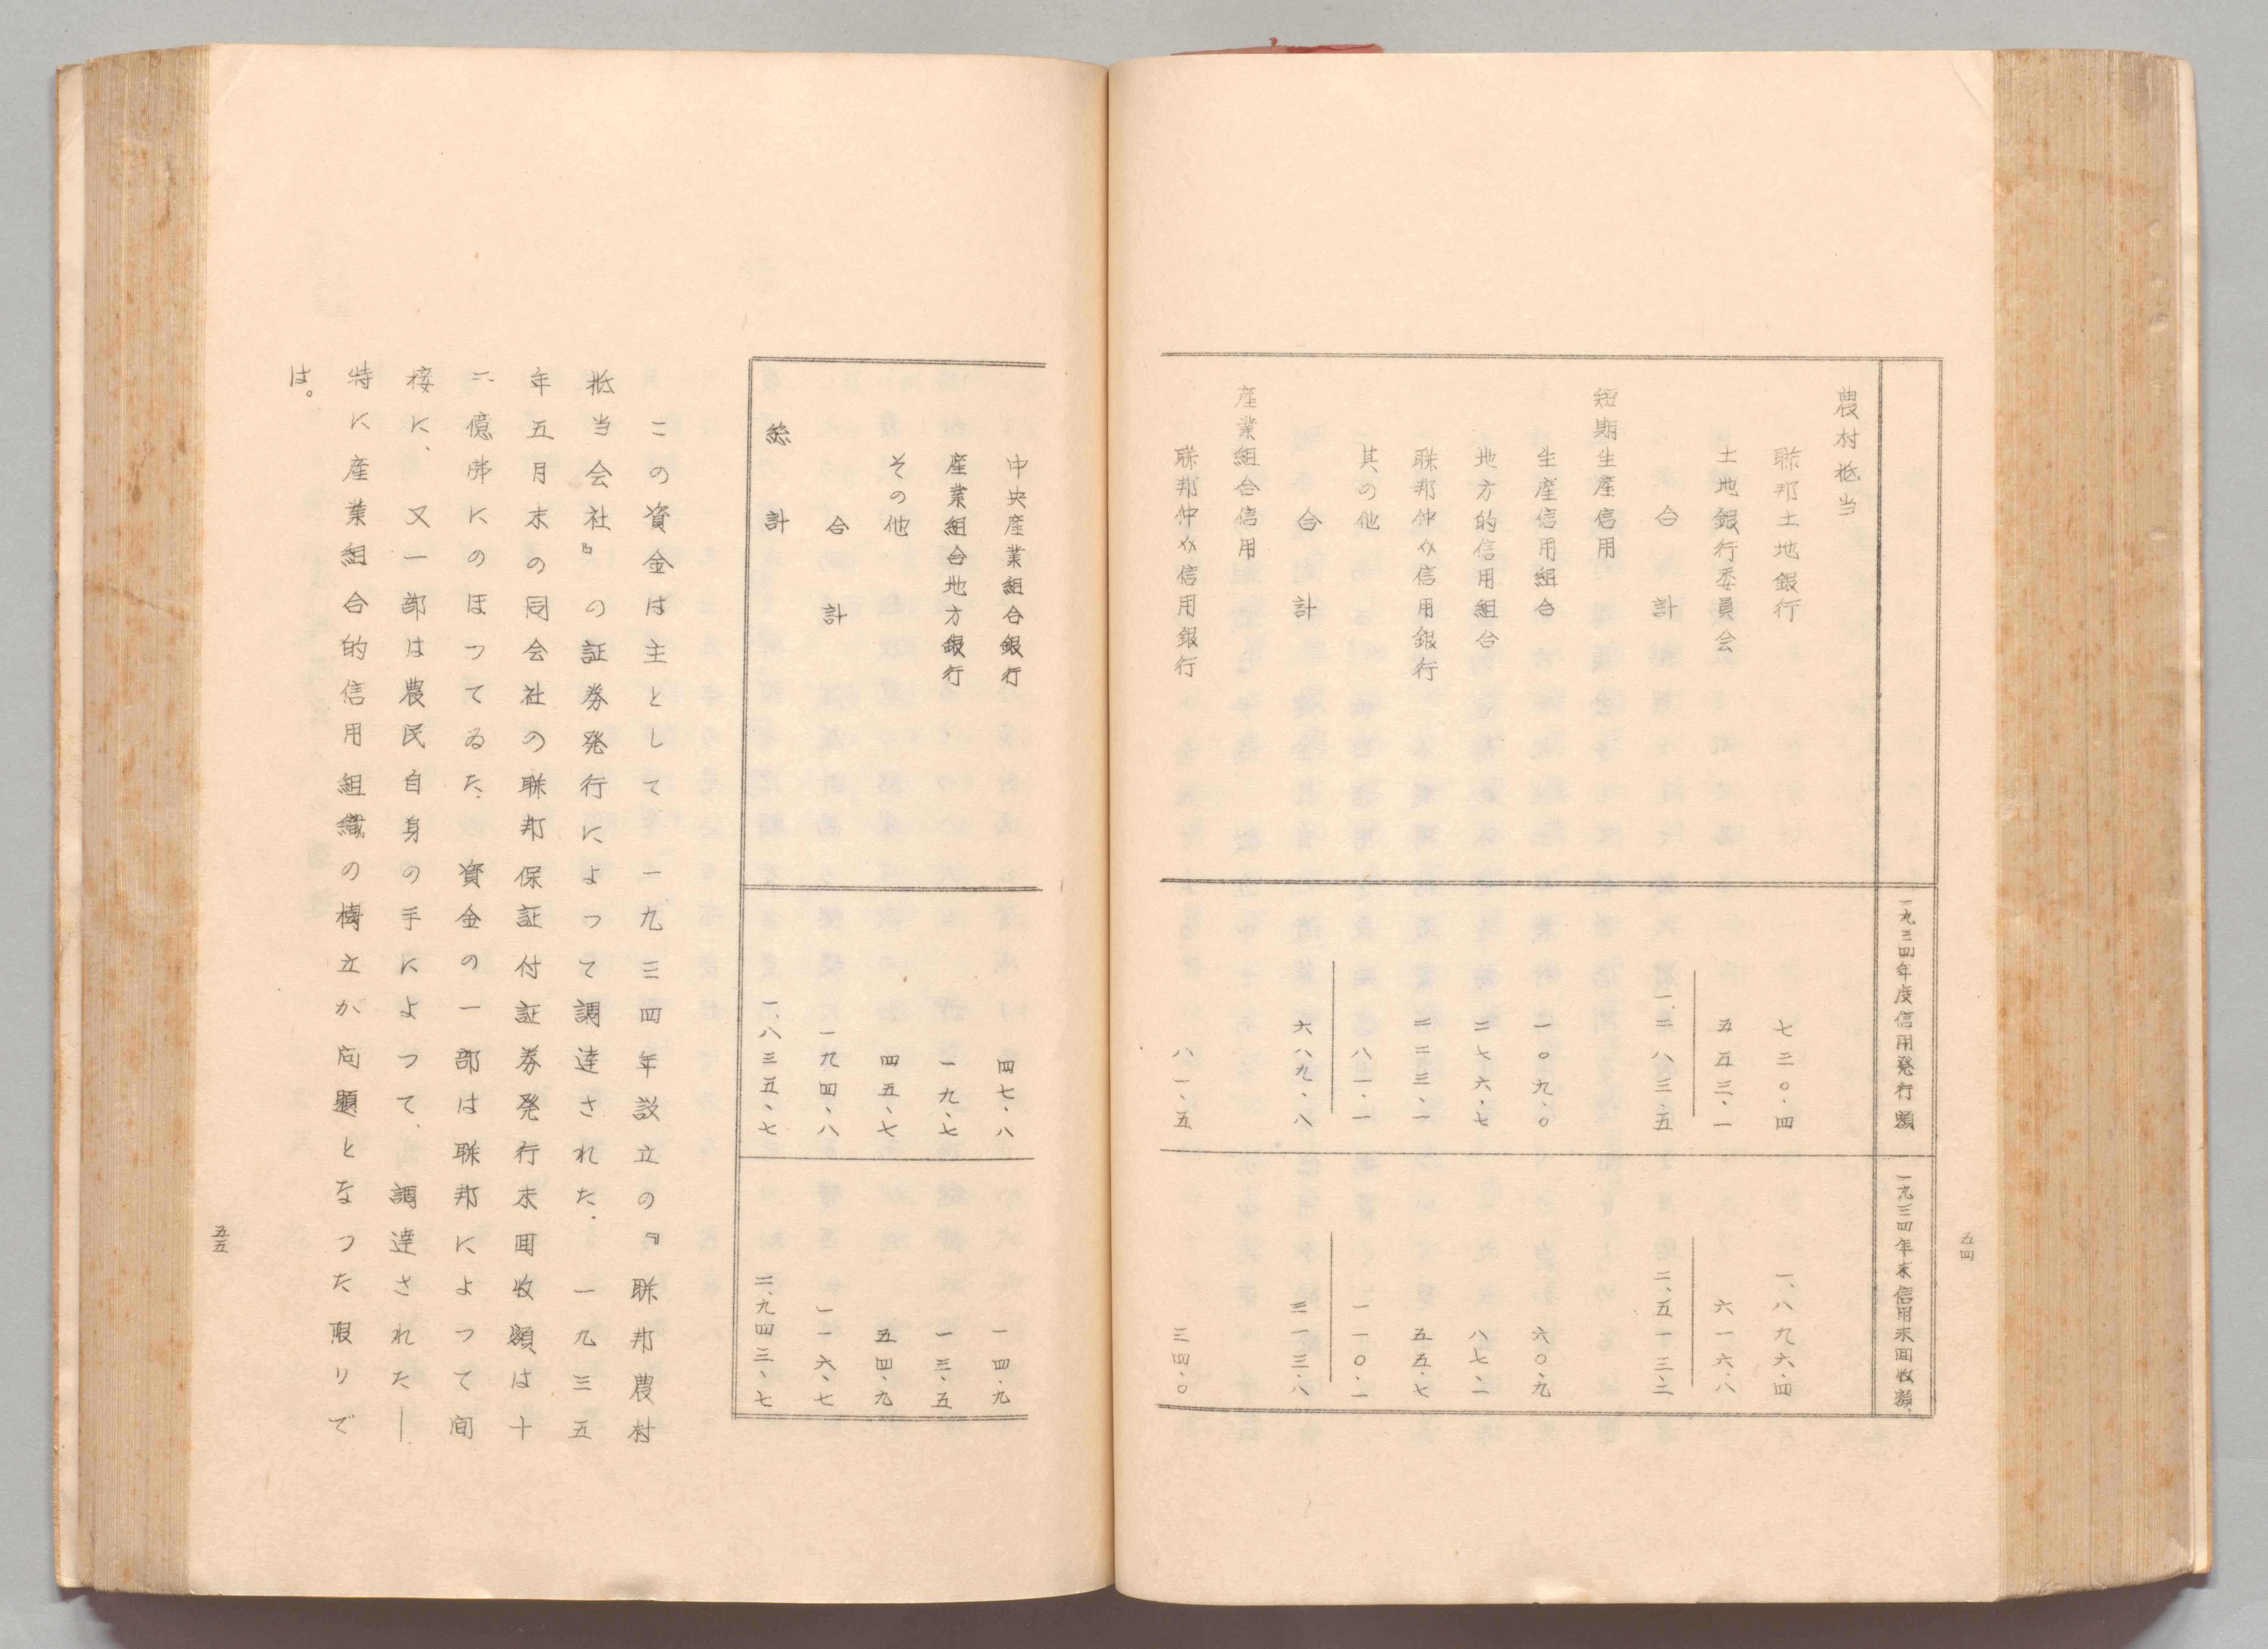 五四
一九三四年度信用発行額
一九三四年末信用未回收額、
農村抵当
聯邦土地銀行 七三〇・四 一、八九六・四
土地銀行委員会 五五三・一 六一六・八
合計 一、二八三・五 二、五一三・二
短期生産信用
生産信用組合 一〇九・〇 六〇・九
地方的信用組合 二七六・七 八七・一
聯邦仲介信用銀行 二二三・一 五五・七
其の他 八一・一 一一〇・一
合計 六八九・八 三一三・八
産業組合信用
聯邦仲介信用銀行 八一・五 三四・〇
中央産業組合銀行 四七・八 一四・九
産業組合地方銀行 一九・七 一三・五
その他 四五・七 五四・九
合計 一九四・八 一一六・七
総計 一、八三五・七 二、九四三・七
この資金は主として、一九三四年設立の『聯邦農村
抵当会社』の証券発行によつて調達された。一九三五
年五月末の同会社の聯邦保証付証券発行未回收額は十
二億弗にのぼつてゐた。資金の一部は聯邦によつて間
接に、又一部は農民自身の手によつて、調達された―
特に産業組合的信用組織の樹立が問題となつた限りで
は。
五五